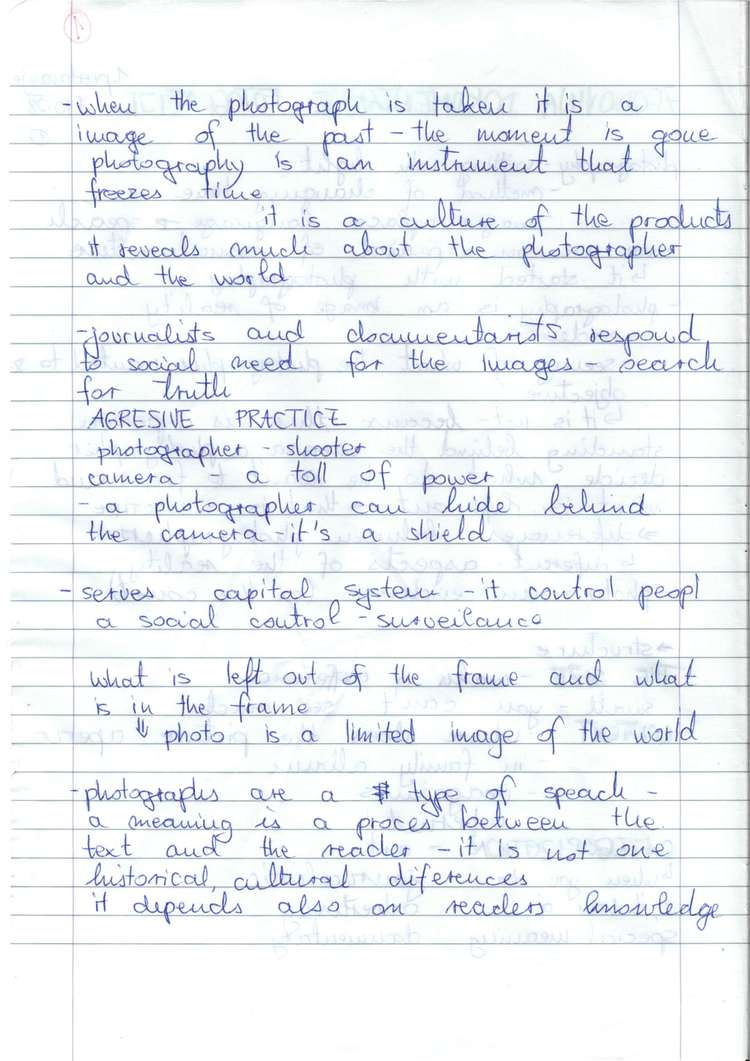 1
- when the photograph is taken it is a
image of the past - the moment is gone
photography is an instrument that
freezes time
it is a culture of the products
it reveals much about the photographer
and the world
- journalists and documentarists respond
to social need for the images - search
for truth
AGRESIVE PRACTICE
photographer - shooter
camera - a toll of power
- a photographer can hide behind
the camera - it's a shield
- serves capital system - it control peopl
a social control - surveilance
what is left out of the frame and what
is in the frame
⇓ photo is a limited image of the world
- photographs are a type of speach -
a meaning is a proces between the
text and the reader - it is not one
historical, cultural diferences
it depends also on readers knowledge